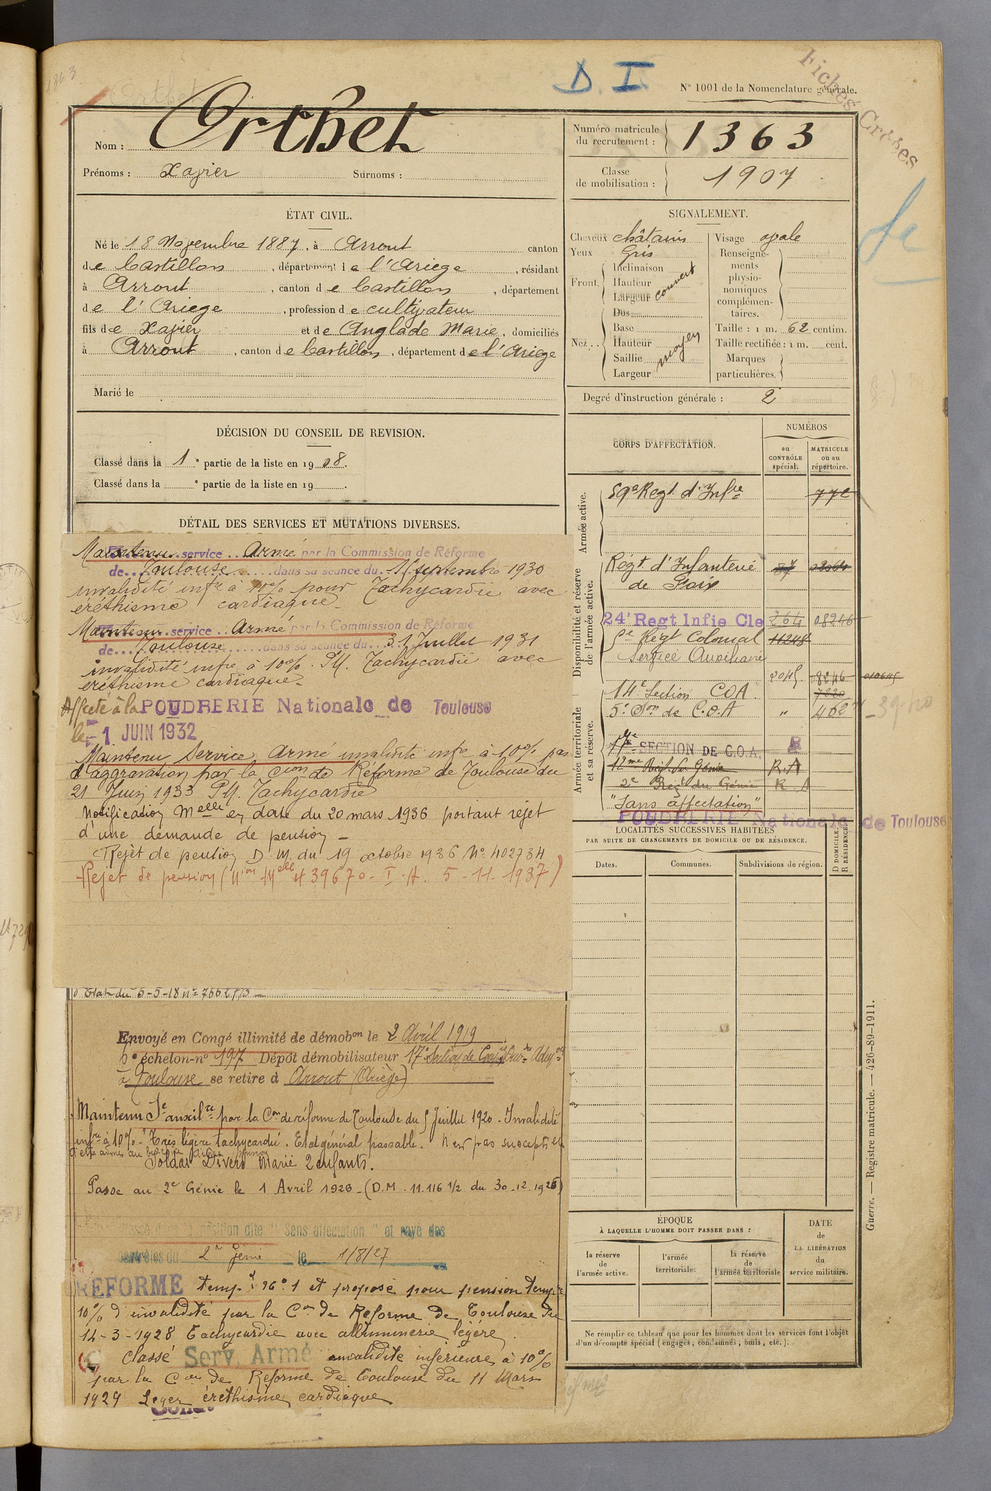 D. I
N° 1001 de la Nomenclature générale.
Fiches Créées
Nom : Orthet
Prénoms : Xavier Surnoms :
Numéro matricule du recrutement : 1363
Classe de mobilisation : 1907
ÉTAT CIVIL.
Né le 18 Novembre 1887, à Arrout canton
de Castillon, département de l'Ariège, résidant
à Arrout, canton de Castillon, département
de l'Ariège, profession de cultivateur
fils de Xavier et de Anglade Marie, domiciliés
à Arrout, canton de Castillon, département de l'Ariège
Marié le
SIGNALEMENT.
Cheveux châtains
Yeux Gris
Front. Inclinaison
Hauteur
Largeur couvert
Nez. Dos
Base
Hauteur moyen
Saillie
Largeur
Visage ovale
Renseignements physionomiques complémentaires.
Taille : 1 m. 62 centim.
Taille rectifiée : 1 m. cent.
Marques particulières.
Degré d'instruction générale : 2
DÉCISION DU CONSEIL DE REVISION.
Classé dans la 1e partie de la liste en 1908.
Classé dans la e partie de la liste en 19
DÉTAIL DES SERVICES ET MUTATIONS DIVERSES.
Maintenu service Armé par la Commission de Réforme
de Toulouse dans sa séance du 11 septembre 1930
invalidité infre à 10% pour Tachycardie avec
éréthisme cardiaque.
Maintenu service Armé par la Commission de Réforme
de Toulouse dans sa séance du 31 Juillet 1931
invalidité infre à 10%. Tachycardie avec
éréthisme cardiaque.
Affecté à la POUDRERIE Nationale de Toulouse
le -1 JUIN 1932
Maintenu Service Armé invalidité infre à 10% pas
d'aggravation par la Cion de Réforme de Toulouse du
21 Juin 1933 Tachycardie
Notification Melle en date du 20 mars 1936 portant rejet
d'une demande de pension -
Rejet de pension D. M. du 19 octobre 1936 N° 402734
Rejet de pension (39670 - I. A. 5-11-1937)
Etat du 5-5-18
Envoyé en Congé illimité de démobon le 2 Avril 1919
6e échelon - n° 197 Dépôt démobilisateur 17e
à Toulouse se retire à Arrout (Ariège)
Maintenu Se auxilre par la Con de réforme de Toulouse du 5 Juillet 1920 - Invalidité
infre à 10% - Très légère tachycardie. Etat général passable. N'est pas susceptible
Soldat Divers Marié 2 enfants.
Passé au 2e Génie le 1 Avril 1926 - (D.M. 11.116 1/2 du 30-12-1925)
position dite "Sans affectation" et rayé des
contrôles du 2e Génie le 1/8/27
REFORMÉ temp. n° 1 et proposé pour pension temp
10% d'invalidité par la Con de Reforme de Toulouse du
14-3-1928 Tachycardie avec albuminerie légère
classé Serv. Armé invalidité inférieure à 10%
par la Con de Reforme de Toulouse du 11 Mars
1929 Leger éréthisme cardiaque
CORPS D'AFFECTATION.
NUMÉROS
au CONTRÔLE spécial.
MATRICULE ou au répertoire.
Armée active.
59e Regt d'Infre 772
Disponibilité et réserve de l'armée active.
Régt d'Infanterie de Foix
24e Regt Infie Cle 08246
Regt Colonial
Service Auxiliaire 8246
Armée territoriale et sa réserve.
14e Section C.O.A. 7220
5e Son de C.O.A " 4
17e SECTION DE C.O.A.
R. A
2e Regt du Génie R. A
"Sans affectation"
POUDRERIE Nationale de Toulouse
LOCALITÉS SUCCESSIVES HABITÉES
PAR SUITE DE CHANGEMENTS DE DOMICILE OU DE RÉSIDENCE.
Dates. Communes. Subdivisions de région. D DOMICILE. R RÉSIDENCE.
ÉPOQUE
À LAQUELLE L'HOMME DOIT PASSER DANS :
la réserve de l'armée active.
l'armée territoriale.
la réserve de l'armée territoriale
DATE de LA LIBÉRATION du service militaire.
Ne remplir ce tableau que pour les hommes dont les services font l'objet
d'un décompte spécial (engagés, condamnés, omis, etc.).
Guerre. — Registre matricule. — 426-89-1911.